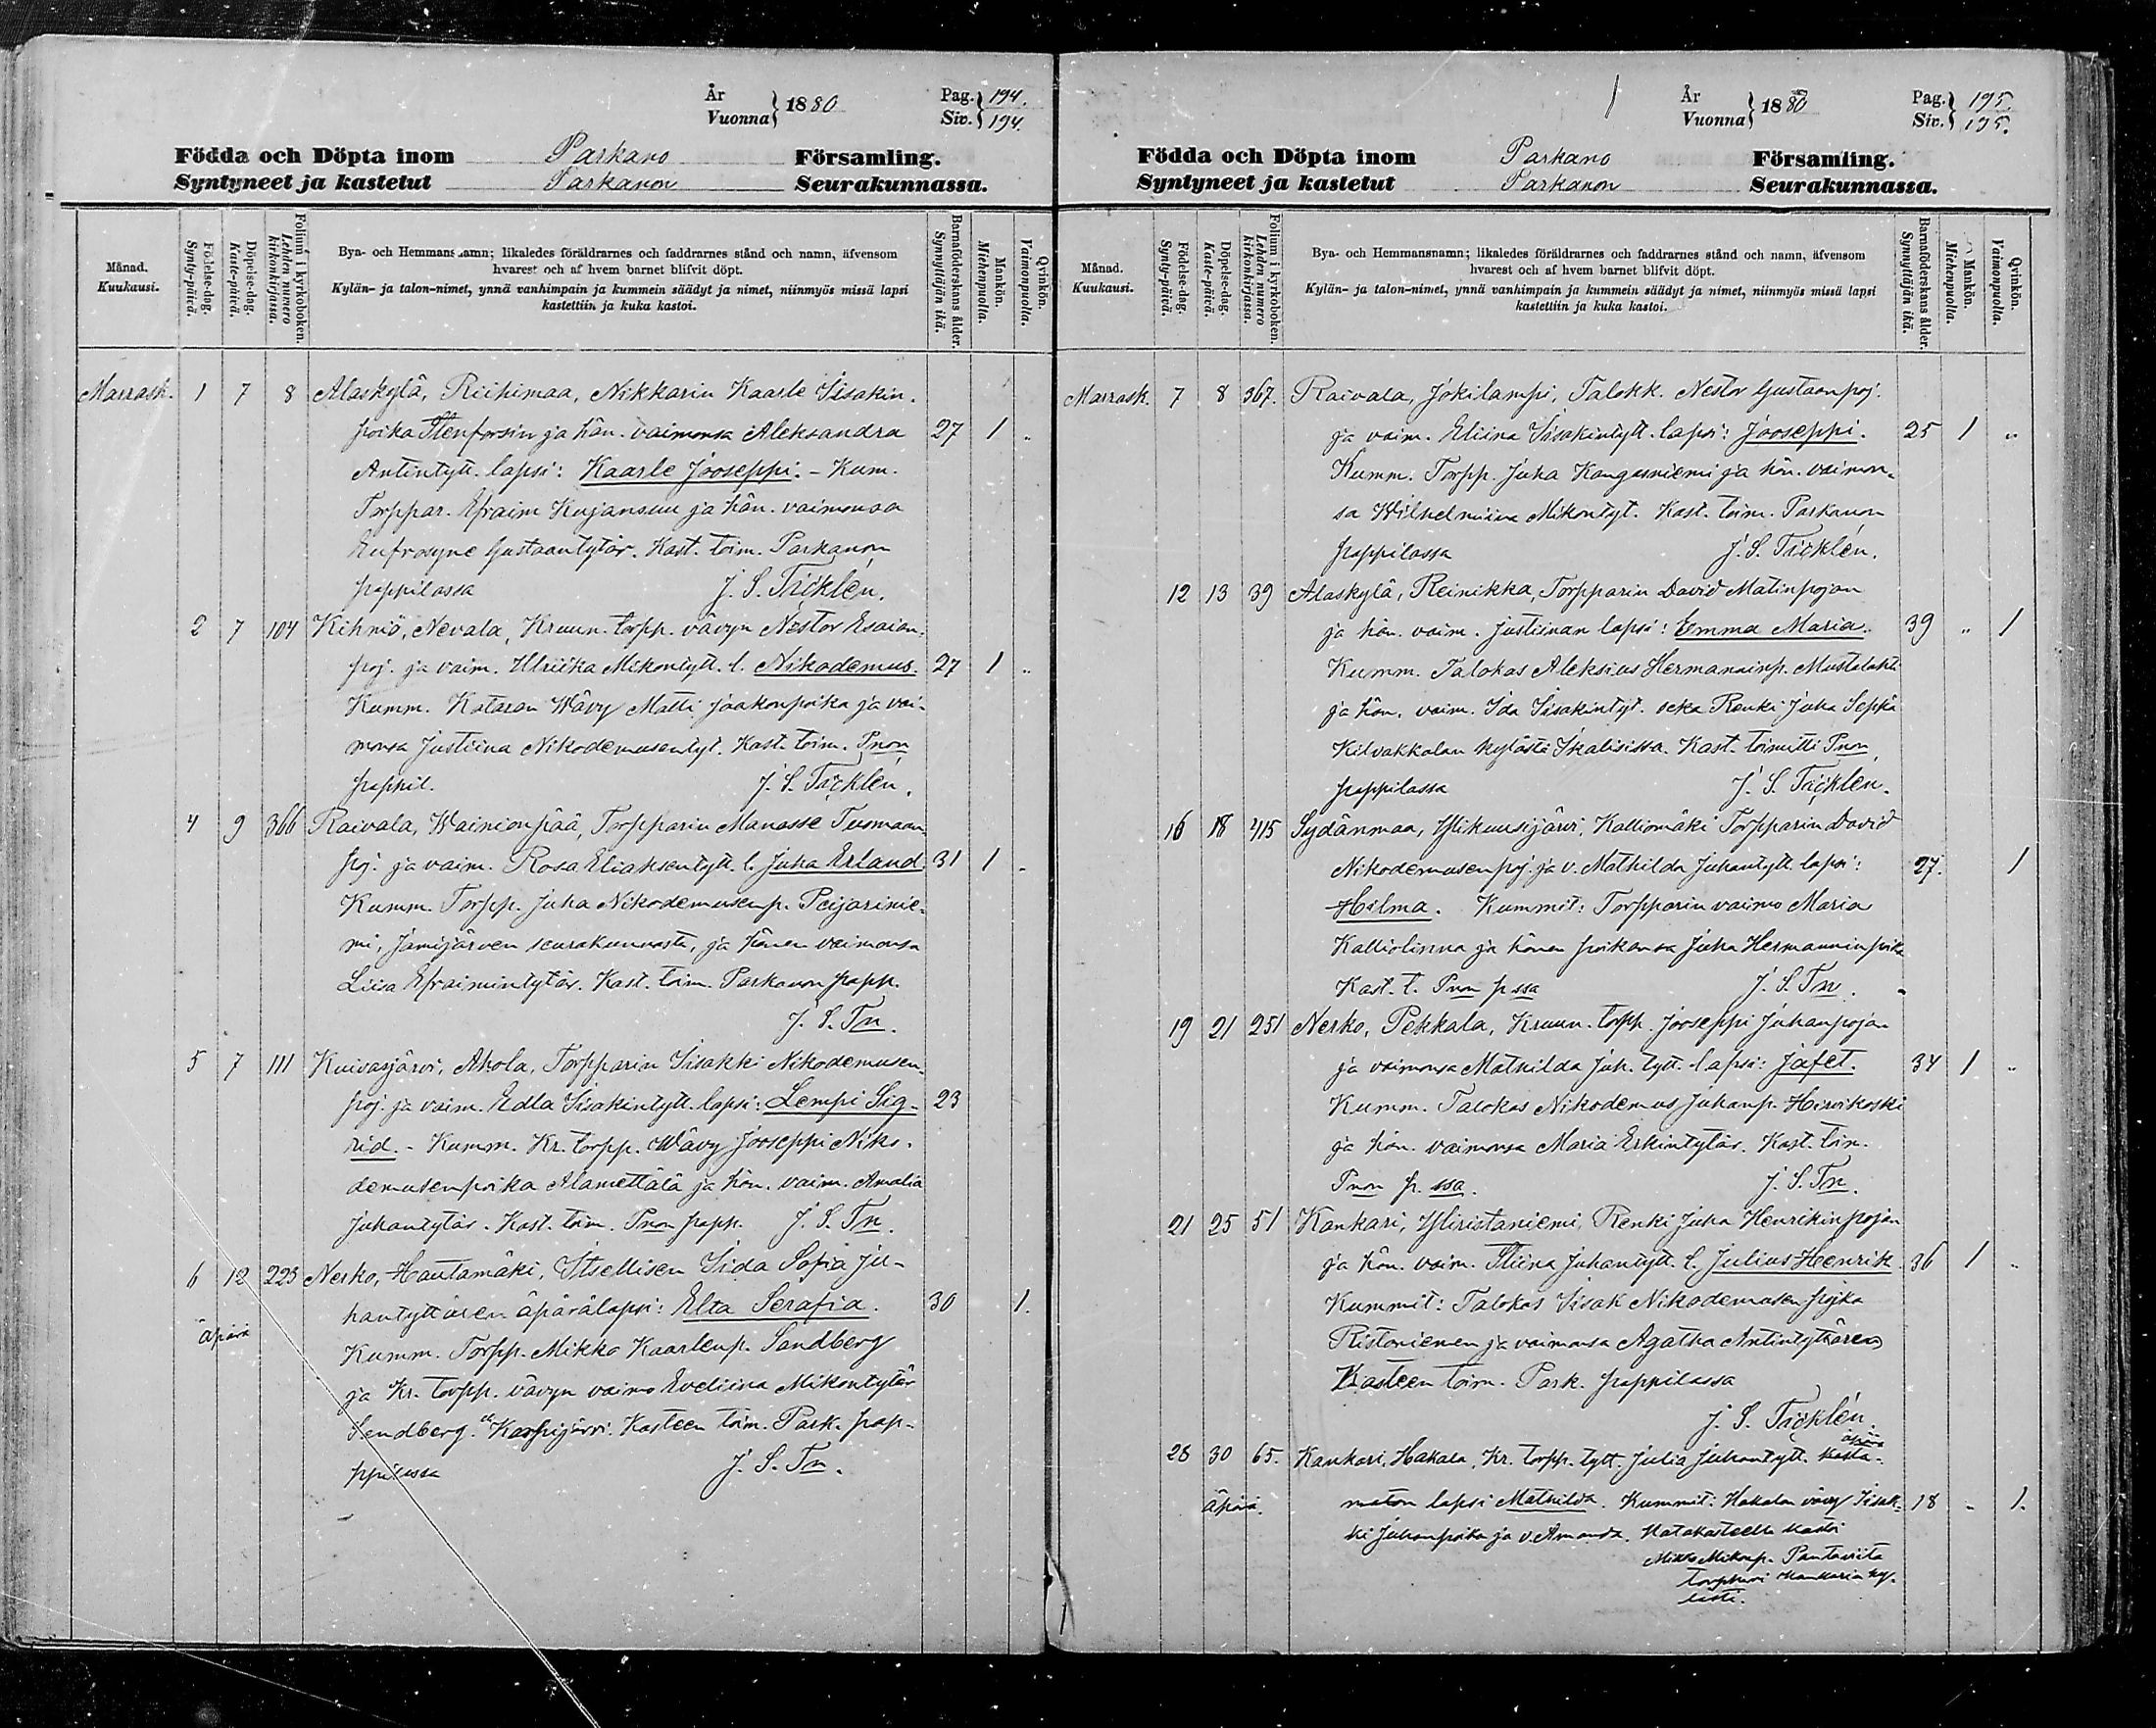 År
Vuonna } 1880
Pag. } 194.
Siv. } 194.
Födda och Döpta inom Parkano Församling.
Syntyneet ja kastetut Parkanon Seurakunnassa.
Månad.
Kuukausi.
Födelse-dag.
Synty-päivä.
Döpelse-dag.
Kaste-päivä.
Folium i kyrkoboken.
Lehden numero kirkonkirjassa.
Bya- och Hemmansnamn; likaledes föräldrarnes och faddrarnes stånd och namn, äfvensom
hvarest och af hvem barnet blifvit döpt.
Kylän- ja talon-nimet, ynnä vanhimpain ja kummein säädyt ja nimet, niinmyös missä lapsi
kastettiin ja kuka kastoi.
Barnaföderskans ålder.
Synnyttäjän ikä.
Mankön.
Miehenpuolta.
Qvinkön.
Vaimonpuolta.
Marrask. 1 7 8 Alaskylä, Riihimaa, Nikkarin Kaarle Iisakin-
poika Stenforsin ja hän. vaimonsa Aleksandra 27 1 "
Antintytt. lapsi: Kaarle Jooseppi. - Kum.
Torppar. Efraim Kujansuu ja hän. vaimonsa
Eufrosyne Gustaantytär. Kast. toim. Parkanon
pappilassa J. S. Täcklén.
2 7 104 Kihniö, Nevala, Kruun. torpp. vävyn Nestor Esaian-
poj. ja vaim. Ulriika Mikontytt. l. Nikodemus. 27 1 "
Kumm. Kataran Wävy Matti Jaakonpoika ja vai-
monsa Justiina Nikodemusentyt. Kast. toim. Pnon
pappil. J. S. Täcklén.
4 9 366 Raivala, Wainionpää, Torpparin Manasse Tuomaan-
poj. ja vaim. Rosa Eliaksentytt. l. Juha Erland. 31 1 "
Kumm. Torpp. Juha Nikodemusenp. Peijarinie-
mi, Jämijärven seurakunnasta, ja hänen vaimonsa
Liisa Efraimintytär. Kast. toim. Parkanon papp.
J. S. Tn.
5 7 111 Kuivasjärvi, Ahola, Torpparin Iisakki Nikodemusen-
poj. ja vaim. Edla Iisakintytt. lapsi: Lempi Sig- 23
rid. - Kumm. Kr. torpp. Wävy Jooseppi Niko-
demusenpoika Alamettälä ja hän. vaim. Amalia
Juhantytär. Kast. toim. Pnon papp. J. S. Tn.
6 12 223 Nerko, Hautamäki, Itsellisen Iida Sofia Ju-
hantyttären äpärälapsi: Elta Serafia. 30 1.
äpärä
Kumm. Torpp. Mikko Kaarlenp. Sandberg
ja Kr. torpp. vävyn vaimo Eveliina Mikontytär
Sandberg. Karpijärvi. Kasteen toim. Park. pap-
pilassa J. S. Tn.
År
Vuonna } 1880
Pag. } 195.
Siv. } 195.
Födda och Döpta inom Parkano Församling.
Syntyneet ja kastetut Parkanon Seurakunnassa.
Månad.
Kuukausi.
Födelse-dag.
Synty-päivä.
Döpelse-dag.
Kaste-päivä.
Folium i kyrkoboken.
Lehden numero kirkonkirjassa.
Bya- och Hemmansnamn; likaledes föräldrarnes och faddrarnes stånd och namn, äfvensom
hvarest och af hvem barnet blifvit döpt.
Kylän- ja talon-nimet, ynnä vanhimpain ja kummein säädyt ja nimet, niinmyös missä lapsi
kastettiin ja kuka kastoi.
Barnaföderskans ålder.
Synnyttäjän ikä.
Mankön.
Miehenpuolta.
Qvinkön.
Vaimonpuolta.
Marrask. 7 8 367. Raivala, Jokilampi, Talokk. Nestor Gustaanpoj.
ja vaim. Eliina Iisakintytt. lapsi: Jooseppi. 25 1 "
Kumm. Torpp. Juha Kangasniemi ja hän. vaimon-
sa Wilhelmiina Mikontyt. Kast. toim. Parkanon
pappilassa J. S. Täcklén.
12 13 39 Alaskylä, Reinikka, Torpparin David Matinpojan
ja hän. vaim. Justiinan lapsi: Emma Maria. 39 " 1
Kumm. Talokas Aleksius Hermanninp. Mustalahti
ja hän. vaim. Ida Iisakintyt. sekä Renki Juha Seppä
Kilvakkalan kylästä Ikalisissa. Kast. toimitti Pnon
pappilassa J. S. Täcklén.
16 18 415 Sydänmaa, Ylikuusijärvi, Kalliomäki Torpparin David
Nikodemusenpoj. ja v. Mathilda Juhantytt. lapsi: 27. 1
Hilma. Kummit: Torpparin vaimo Maria
Kalliolinna ja hänen poikansa Juha Hermanninpoika
Kast. t. Pnon pssa J. S. Tn.
19 21 251 Nerko, Pekkala, Kruun. torpp. Jooseppi Juhanpojan
ja vaimonsa Mathilda Juh. tytt. lapsi: Jafet. 34 1 "
Kumm. Talokas Nikodemus Juhanp. Hirvikoski
ja hän. vaimonsa Maria Erkintytär. Kast. toim.
Pnon p. ssa. J. S. Tn.
21 25 51 Kankari, Yliristaniemi, Renki Juha Henrikinpojan
ja hän. vaim. Stiina Juhantytt. l. Julius Henrik. 36 1 "
Kummit: Talokas Iisak Nikodemusen poika
Ristoniemen ja vaimonsa Agatha Antintyttären
Kasteen toim. Park. pappilassa
J. S. Täcklén.
28 30 65. Kankari, Hakala, Kr. torpp. tytt. Julia Juhantytt. äpärä kasta-
äpärä. maton lapsi Mathilda. Kummit: Hakalan vävy Iisak- 18 " 1.
ki Juhanpoika ja v. Amanda. Hätäkasteella kasti
Mikko Mikonp. Pantaviita
torppari Kankarin ky-
lästä.